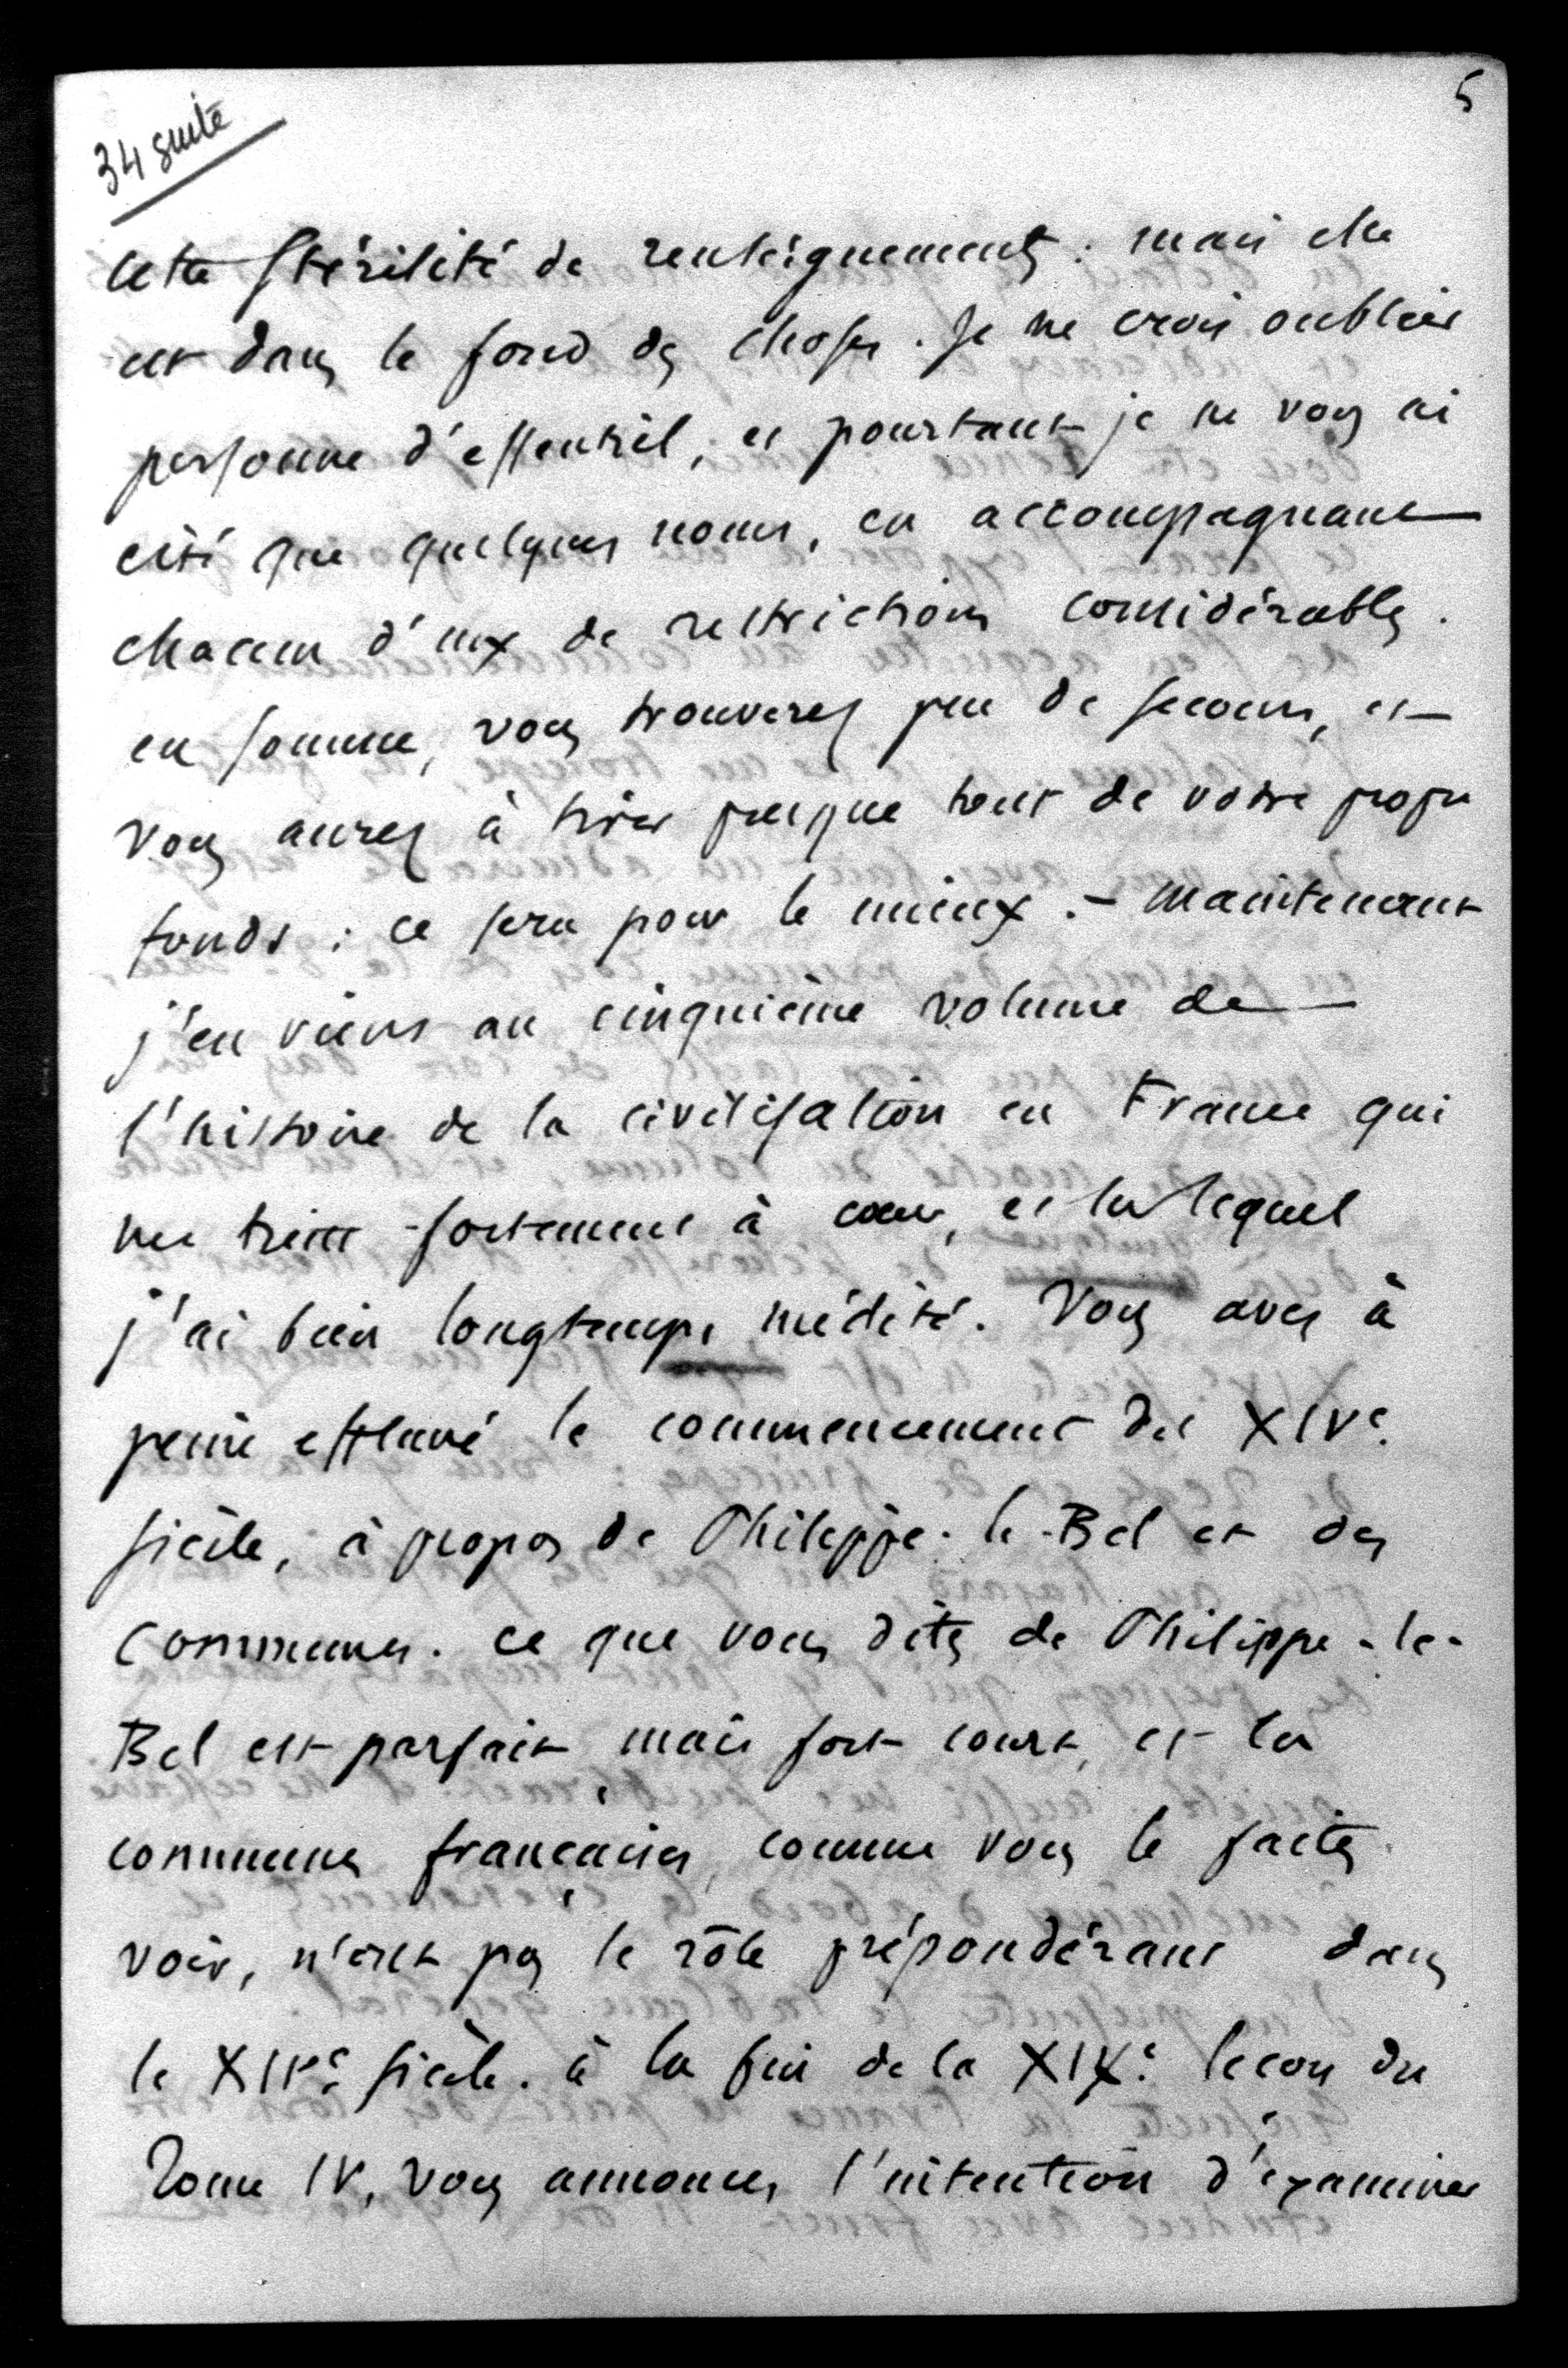 5
34 suite
cette stérilité de renseignements : mais elle
est dans le fond des choses. Je ne crois oublier
personne d'essentiel, et pourtant je ne vous ai
cité que quelques noms, en accompagnant
chacun d'eux de restrictions considérables.
en somme, vous trouverez peu de secours, et
vous aurez à tirer presque tout de votre propre
fonds : ce sera pour le mieux. - Maintenant
j'en viens au cinquième volume de
l'histoire de la civilisation en France qui
me tient fortement à cœur, et sur lequel
j'ai bien longtemps médité. Vous avez à
peine effleuré le commencement du XIVe.
siècle, à propos de Philippe-le-Bel et des
Communes. ce que vous dites de Philippe-le-
Bel est parfait, mais fort court, et les
communes françaises, comme vous le faites
voir, n'ont pas le rôle prépondérant dans
le XIVe. siècle. à la fin de la XIXe. leçon du
Tome IV, vous annoncez l'intention d'examiner